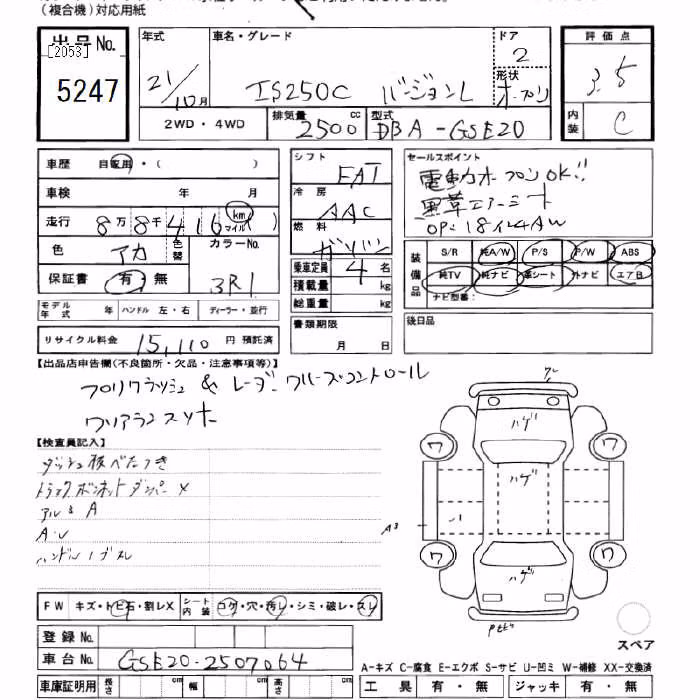 (複合機)対応用紙
出品No.
[2053]
5247
年式
21/10月
車名・グレード
IS250C バージョンL
ドア
2
形状
オープン
評価点
3.5
内装
C
2WD・4WD
排気量
2500 cc
型式
DBA-GSE20
車歴 自家用・( )
車検 年 月
走行 8万8千416 km マイル( )
色 アカ 色替
カラーNo.
3R1
保証書 有・無
モデル年式 年 ハンドル 左・右 ディーラー・並行
リサイクル料金 15,110 円 預託済
シフト
FAT
冷房
AAC
燃料
ガソリン
乗車定員 4 名
積載量 kg
総重量 kg
書類期限
月 日
セールスポイント
電動オープンOK!!
黒革エアーシート
OP:18インチAW
装備品
S/R 純A/W P/S P/W ABS
純TV 純ナビ 革シート 外ナビ エアB
ナビ型番:
後日品
【出品店申告欄(不良箇所・欠品・注意事項等)】
プリクラッシュ & レーダークルーズコントロール
クリアランスソナー
【検査員記入】
ダッシュ板べたつき
トランクボンネットダンパー×
アルミA
A・U
ハンドルコブスレ
FW キズ・トビ石・割レX
シート内装 コゲ・穴・汚レ・シミ・破レ・スレ
登録No.
車台No. GSE20-2507064
車庫証明用 長さ cm 幅 cm 高さ cm
ハゲ
ワ ワ
ハゲ
A3
ワ ワ
ハゲ
スペア
A-キズ C-腐食 E-エクボ S-サビ U-凹ミ W-補修 XX-交換済
工具 有・無 ジャッキ 有・無